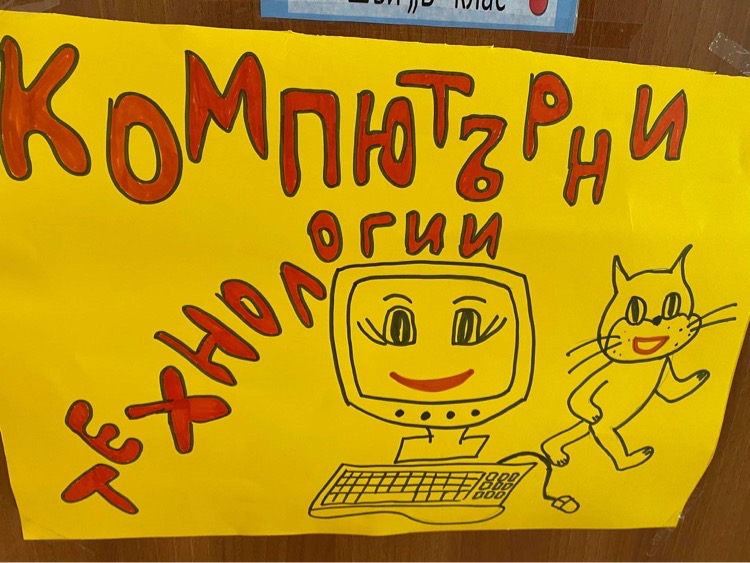 „В" клас
КОМПЮТЪРНИ
ТЕХНОЛОГИИ